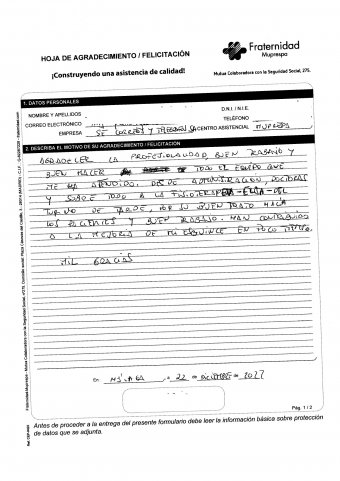 HOJA DE AGRADECIMIENTO / FELICITACIÓN
¡Construyendo una asistencia de calidad!
Fraternidad
Muprespa
Mutua Colaboradora con la Seguridad Social, 275.
1. DATOS PERSONALES
NOMBRE Y APELLIDOS
D.N.I. / N.I.E.
CORREO ELECTRÓNICO
TELÉFONO
EMPRESA SE CORREOS Y TELEGRAFOS SA CENTRO ASISTENCIAL MUPRESPA
2. DESCRIBA EL MOTIVO DE SU AGRADECIMIENTO / FELICITACIÓN
AGRADECER LA PROFESIONALIDAD, BUEN TRABAJO Y
BUEN HACER DE TODO EL EQUIPO QUE
ME HA ATENDIDO. DESDE ADMINISTRACION DOCTORAS
Y SOBRE TODO A LA FISIOTERAPEUTA - ELISA - DEL
TURNO DE TARDE, POR SU BUEN TRATO HACIA
LOS PACIENTES Y BUEN TRABAJO. HAN CONTRIBUIDO
A LA MEJORIA DE MI ESGUINCE EN POCO TIEMPO.
MIL GRACIAS
En MÁLAGA, a 22 de DICIEMBRE de 2022
Pág. 1 / 2
Antes de proceder a la entrega del presente formulario debe leer la información básica sobre protección
de datos que se adjunta.